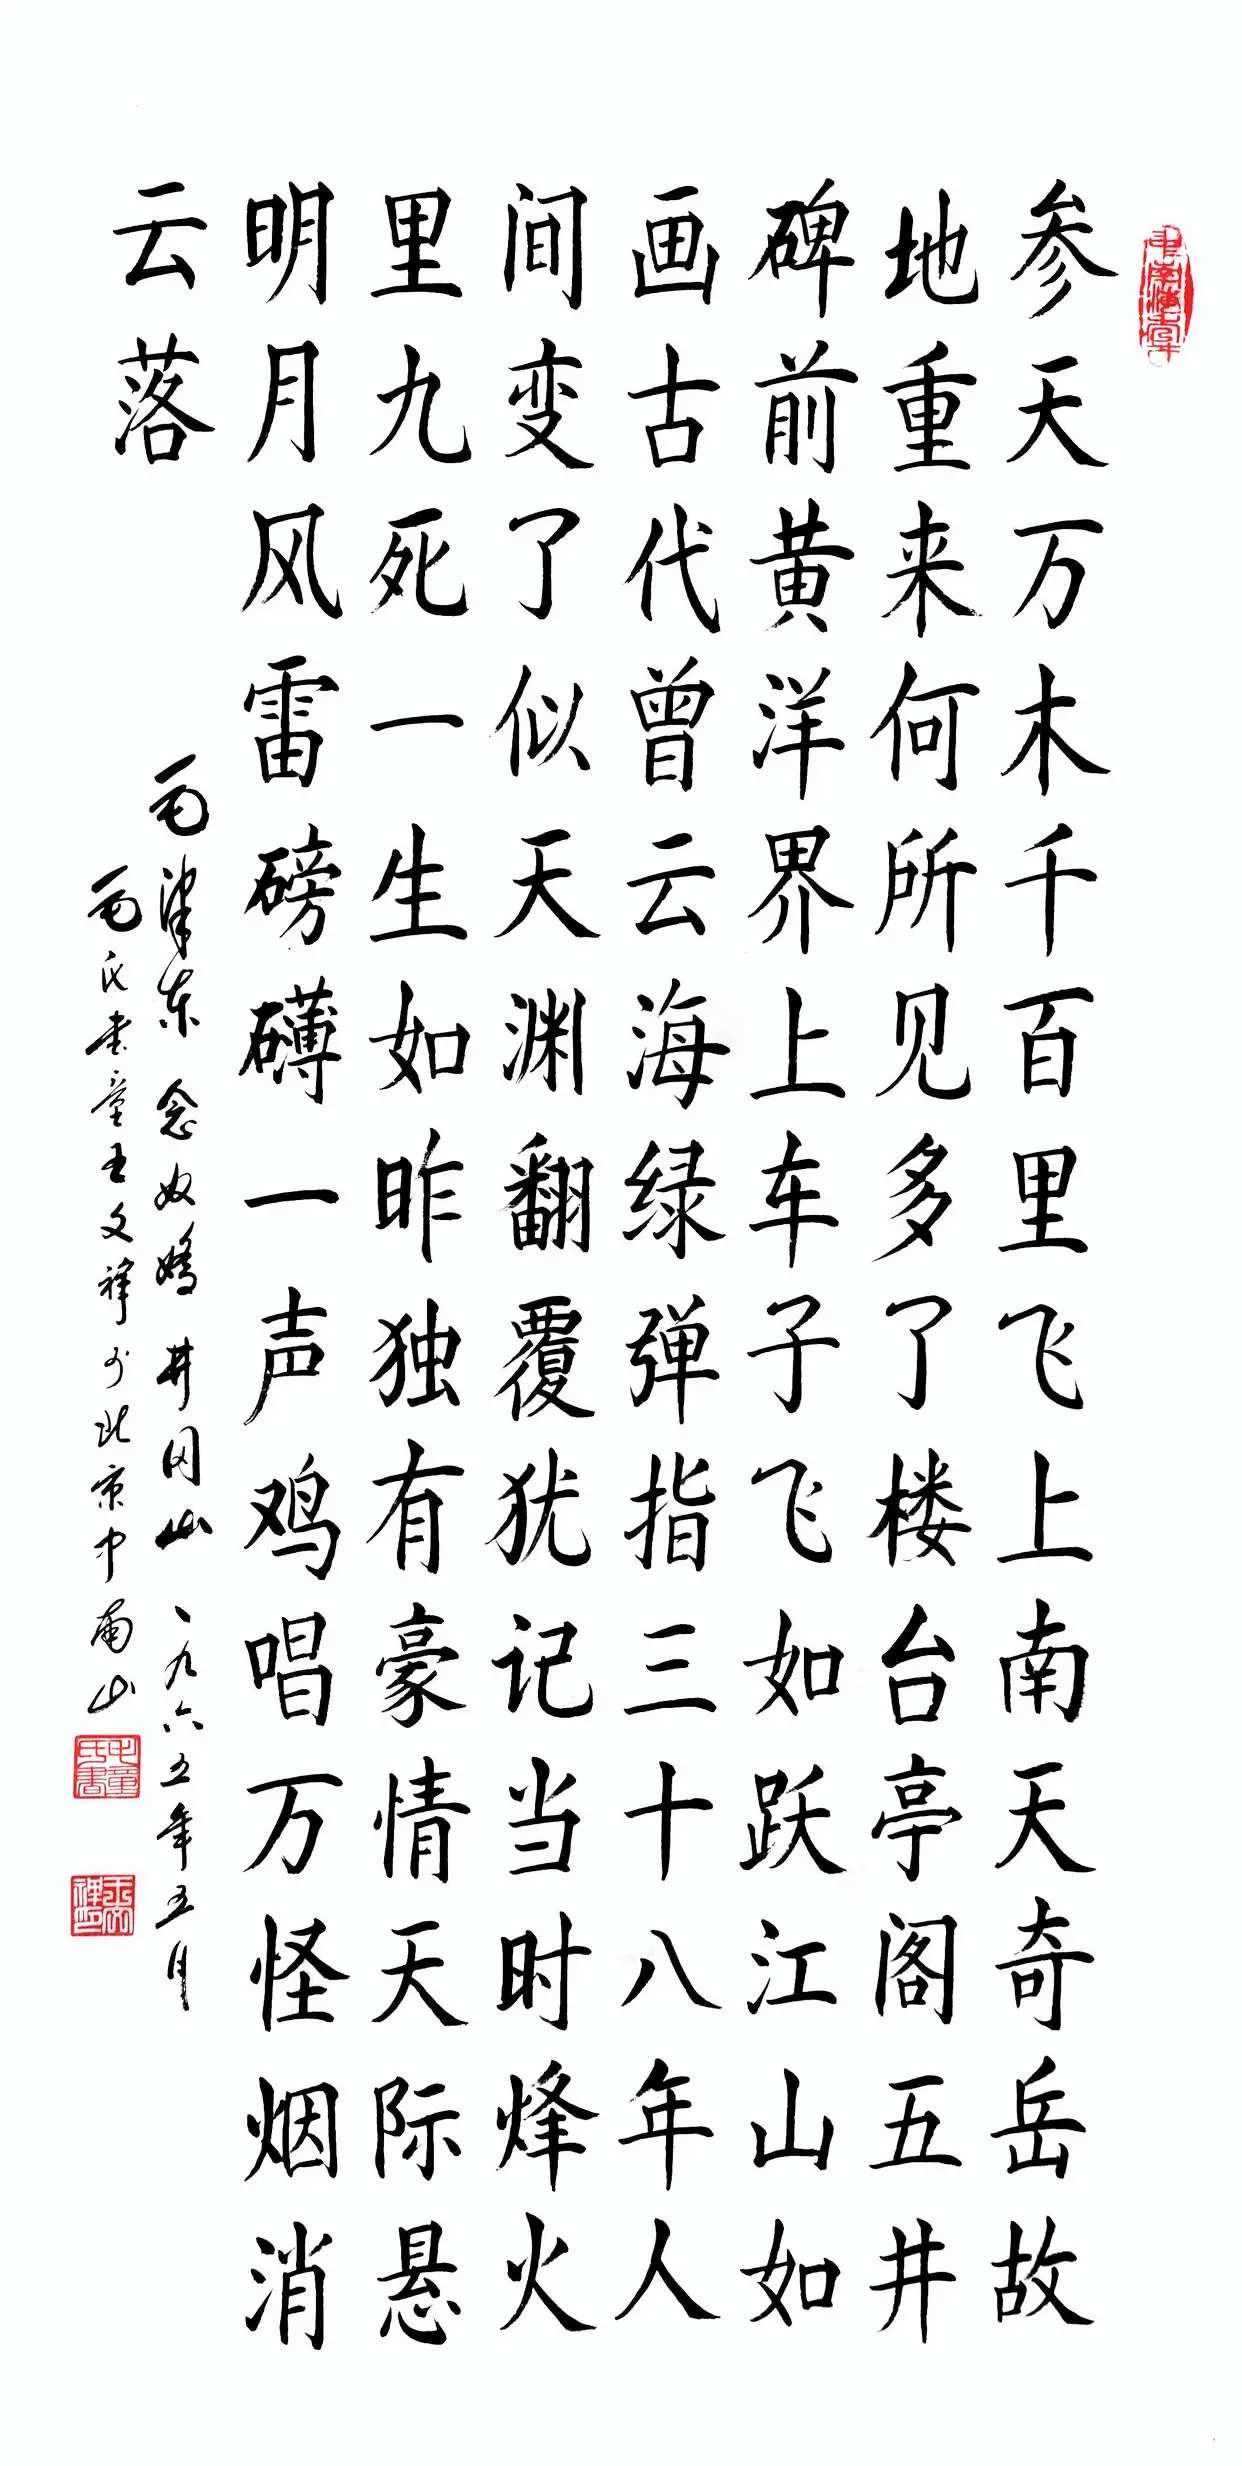 参天万木千百里飞上南天奇岳故
地重来何所见多了楼台亭阁五井
碑前黄洋界上车子飞如跃江山如
画古代曾云海绿弹指三十八年人
间变了似天渊翻覆犹记当时烽火
里九死一生如昨独有豪情天际悬
明月风雷磅礴一声鸡唱万怪烟消
云落
毛泽东 念奴嬌 井冈山 一九六五年五月
毛氏书童王文于北京中南山